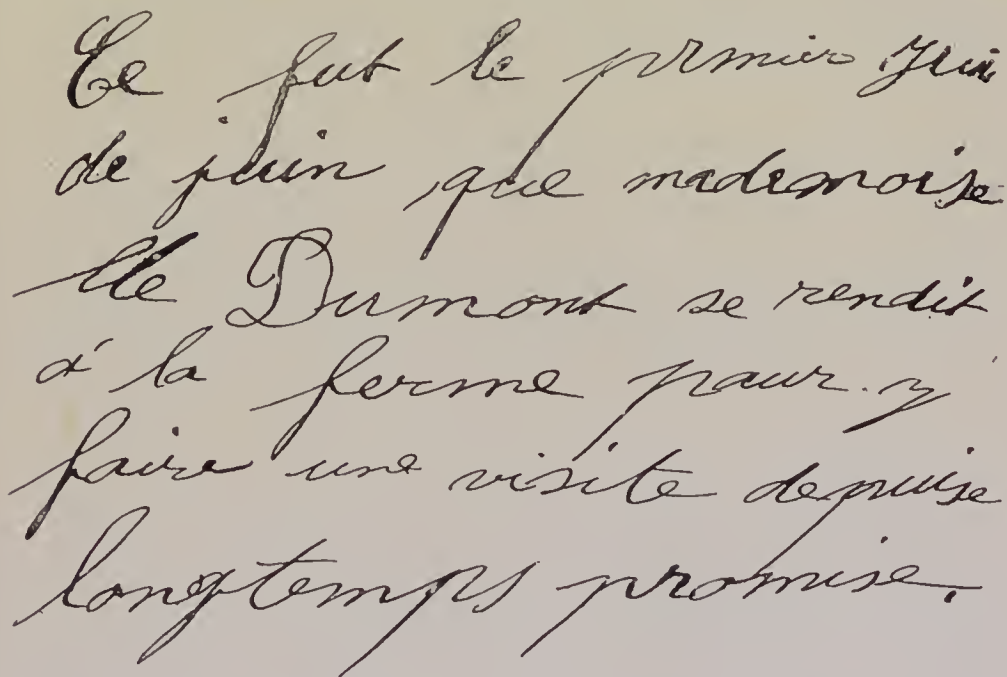 Ce fut le prmier Juin
de juin que mademoise
lle Dumont se rendit
à la ferme pour y
faire une visite depuise
longtemps promise.